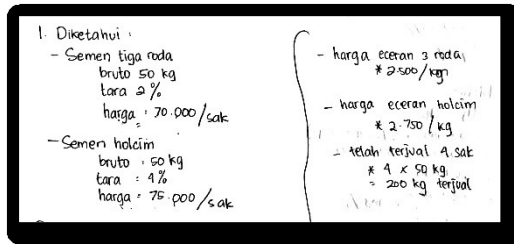 1. Diketahui :
- Semen tiga roda
bruto 50 kg
tara 2%
harga : 70.000/sak
- Semen holcim
bruto : 50 kg
tara : 4%
harga : 75.000/sak
- harga eceran 3 roda
* 2.500/kg
- harga eceran holcim
* 2.750/kg
- telah terjual 4 sak
* 4 x 50 kg
= 200 kg terjual